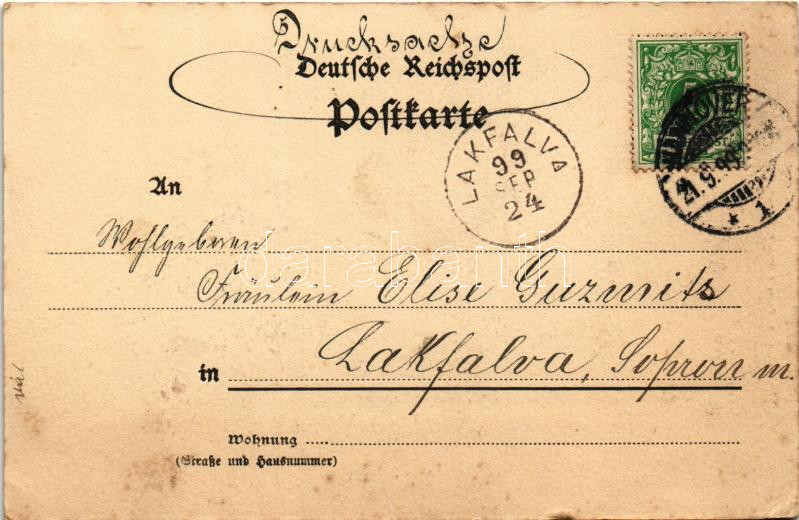 Drucksache
Deutsche Reichspost
Postkarte
HANNOVER 1
21.9.99
* 1
LAKFALVA
99
SEP
24
An
Wohlgeboren
Fräulein Elise Guzmits
in Lakfalva, Sopron m.
Wohnung
(Straße und Hausnummer)
darabanth